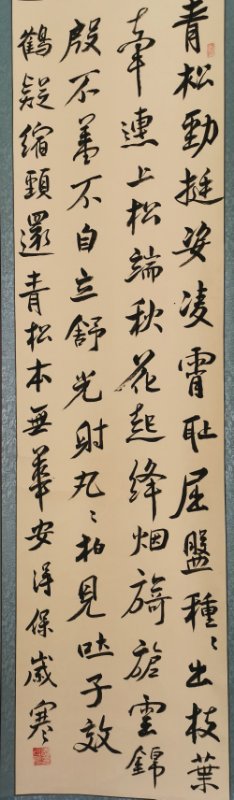 青松勁挺姿凌霄耻屈盤種〻出枝葉
牽連上松端秋花起絳烟旖旎雲錦
殷不羞不自立舒光射丸〻柏見吐子效
鶴疑縮頸還青松本無華安得保歲寒